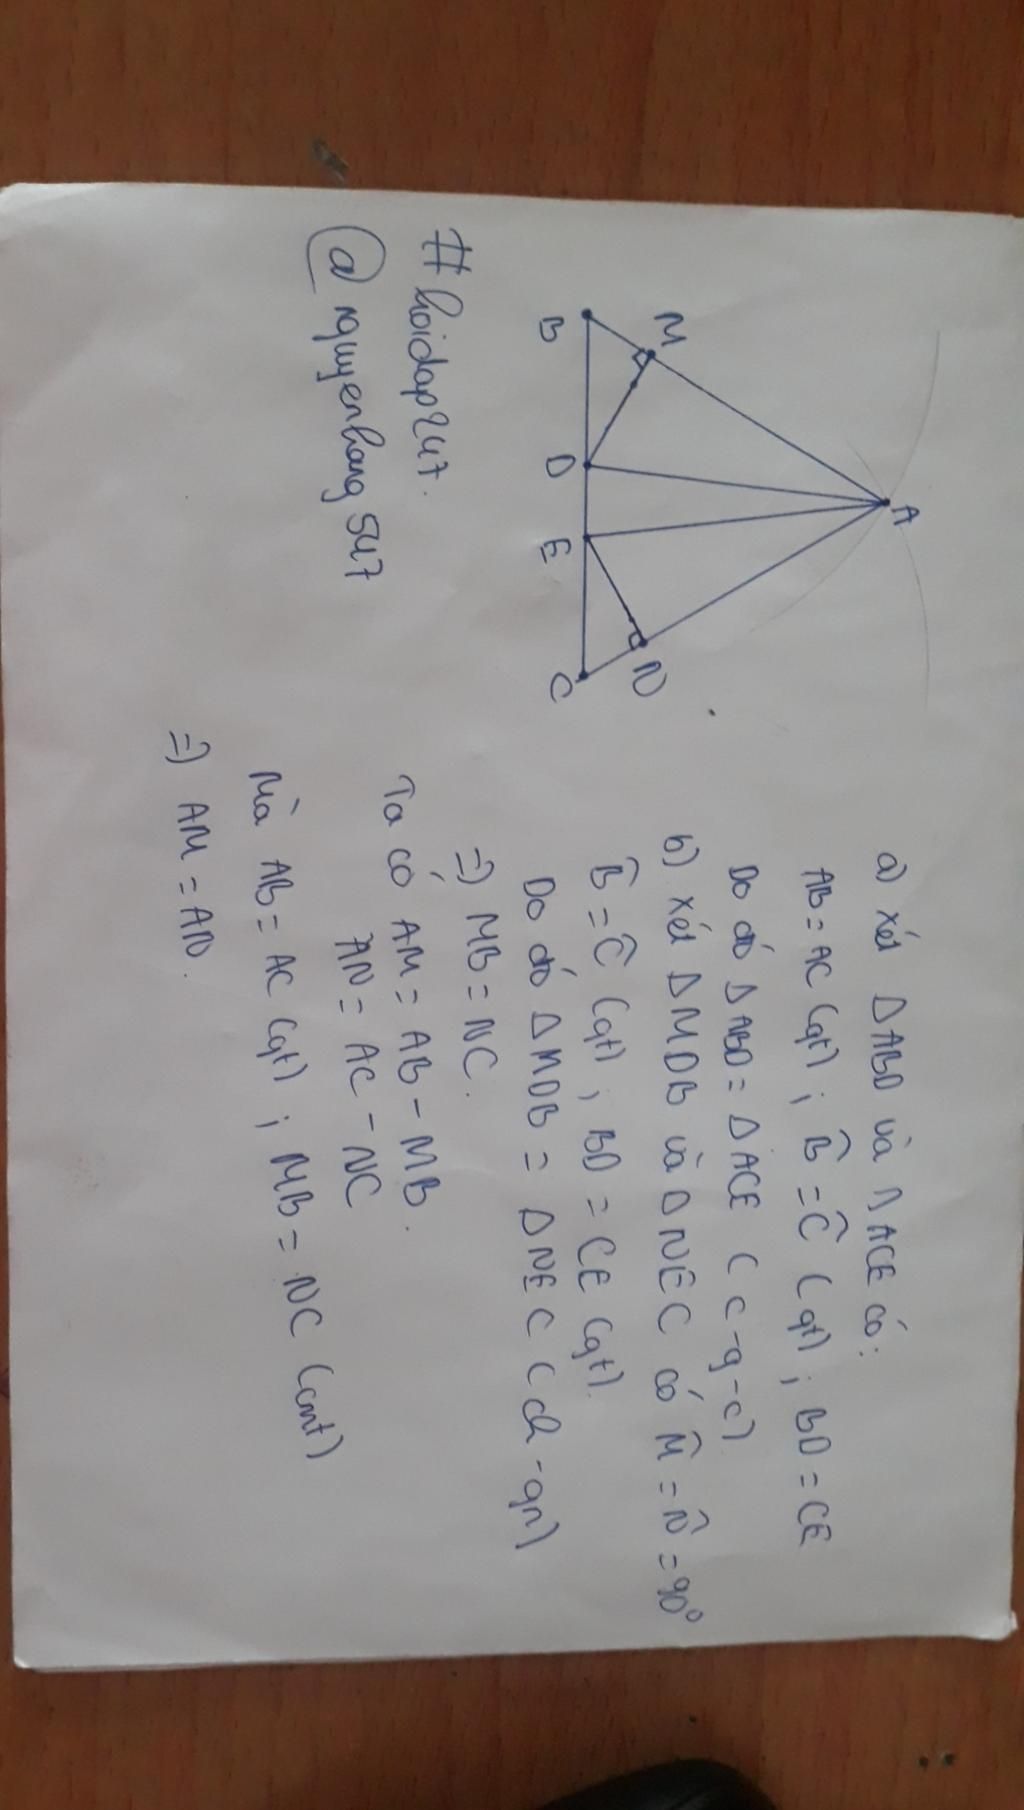 A
M
N
B
D
E
C
#hoidap247.
@nguyenhang547
a) xét ΔABD và ΔACE có:
AB = AC (gt) ; B̂ = Ĉ (gt) ; BD = CE
Do đó ΔABD = ΔACE (c-g-c)
b) xét ΔMDB và ΔNEC có M̂ = N̂ = 90°
B̂ = Ĉ (gt) ; BD = CE (gt).
Do đó ΔMDB = ΔNEC (ch-gn)
=) MB = NC.
Ta có AM = AB - MB.
AN = AC - NC
Mà AB = AC (gt) ; MB = NC (cmt)
=) AM = AN.